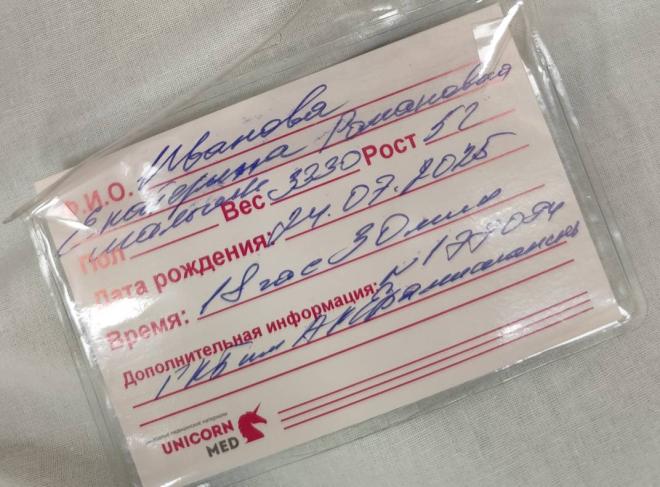 Ф.И.О. Иванова
Екатерина Романовна
Пол мальчик Вес 3230 Рост 52
Дата рождения: 24.07.2025
Время: 18 час 30 мин
Дополнительная информация: №
ГКБ им
UNICORN
MED